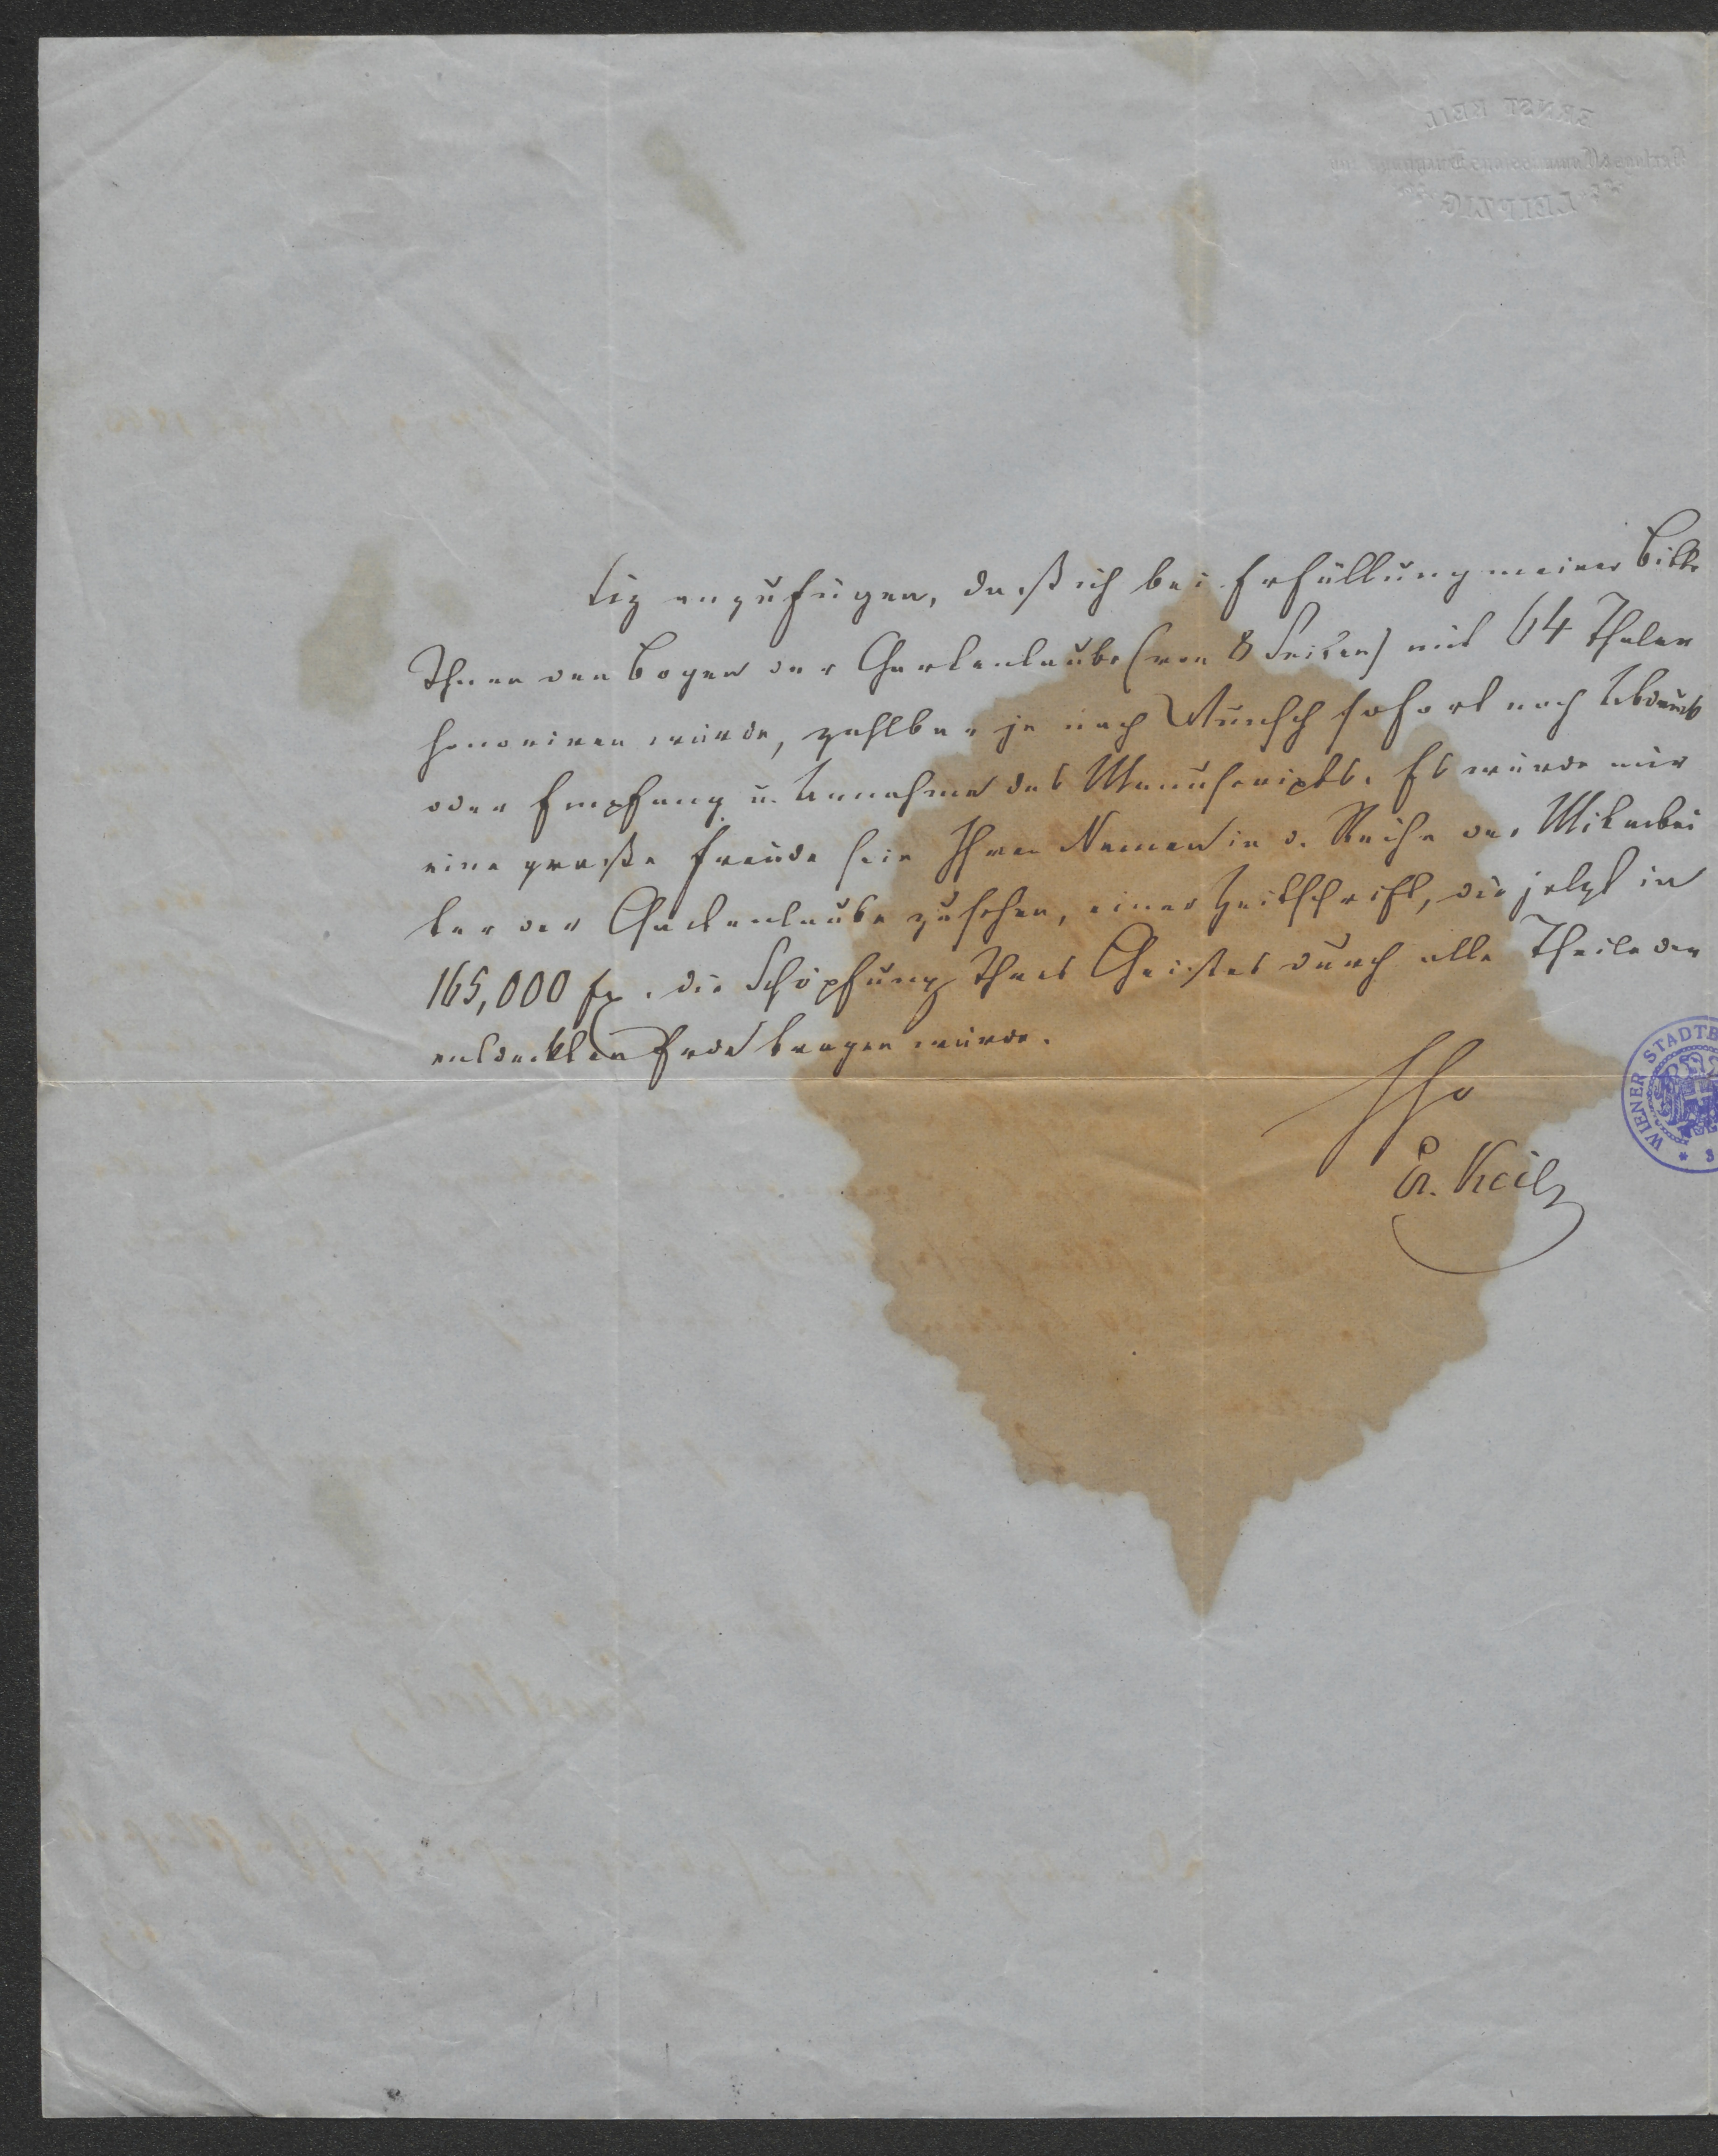 ERNST KEIL
LEIPZIG
tig anzufügen, daß ich bei Erfüllung meiner Bitte
Ihnen den Bogen der Gartenlaube (von 8 Seiten) mit 64 Thaler
honoriren würde, zahlbar je nach Wunsch sofort nach Abdruck
oder Empfang u. Annahme des Manuscripts. Es würde mir
eine große Freude sein Ihren Namen in d. Reihe der Mitarbei
ter der Gartenlaube zu sehen, einer Zeitschrift, die jetzt in
165,000 Ex. die Schöpfung Ihres Geistes durch alle Theile der
entdeckten Erde tragen würde.
WIENER STADTB
E. Keil